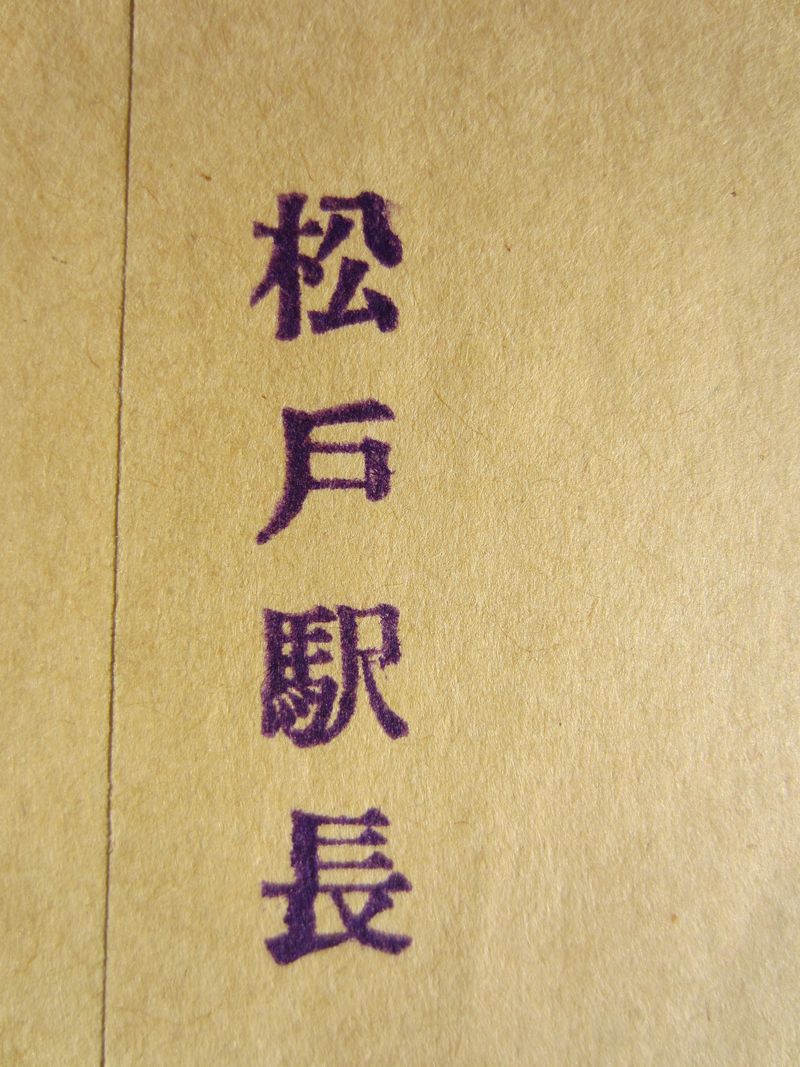 松戸駅長